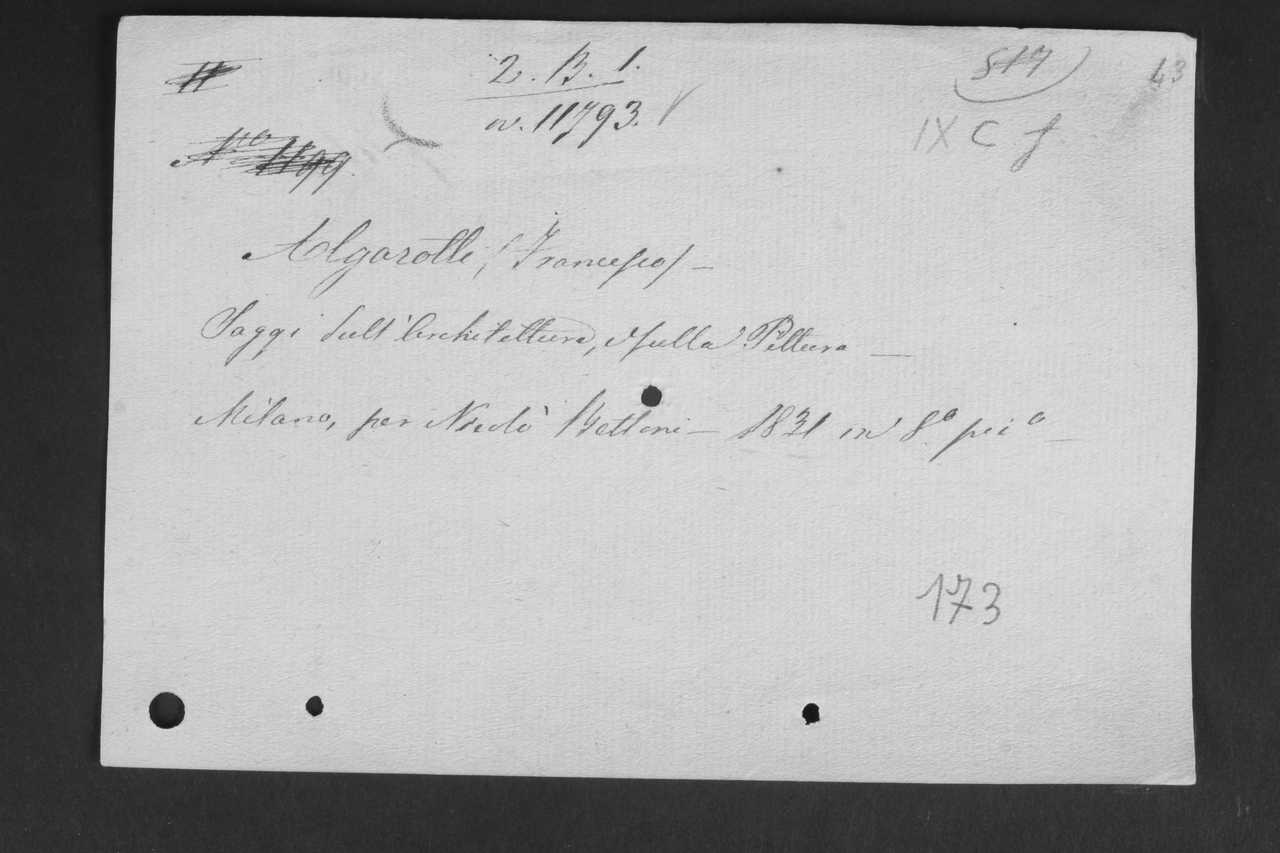 2. B. 1.
n. 11793.
517
43
IX C f
Nro 1199
Algarotti, (Francesco) —
Saggi sull'Architettura, e sulla Pittura —
Milano, per Nicolò Bettoni — 1831 in 8.o pic.o —
173